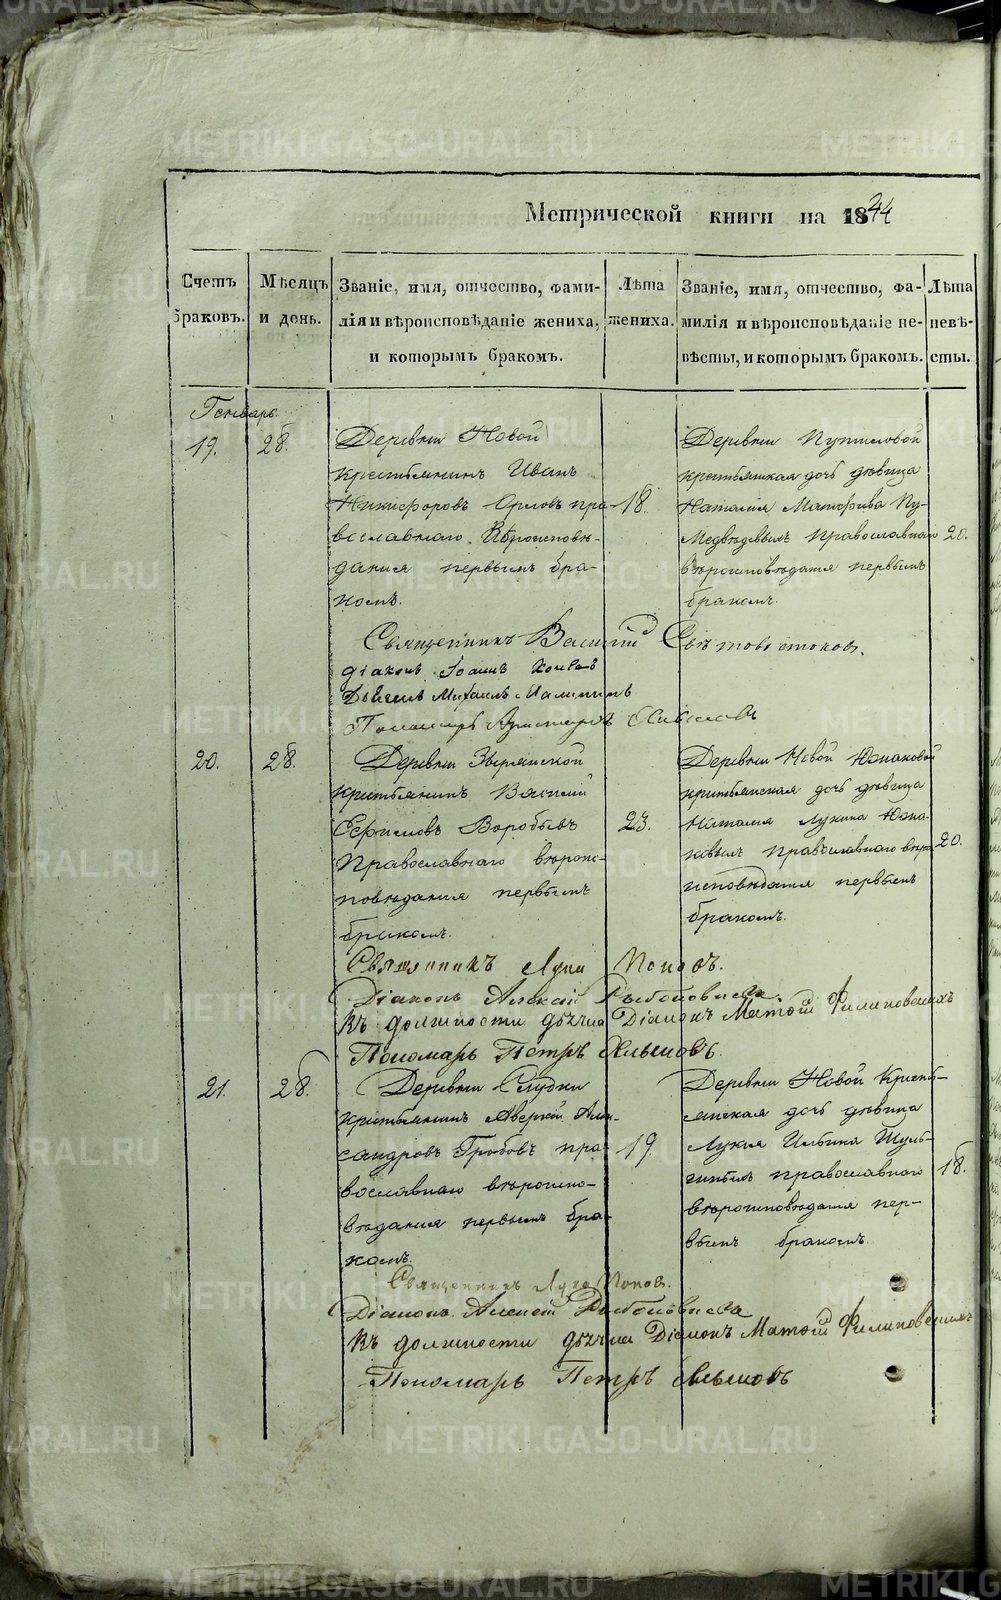 METRIKI.GASO-URAL.RU
Метрической книги на 1844
Счетъ браковъ.
Мѣсяцъ и день.
Званіе, имя, отчество, фами-
лія и вѣроисповѣданіе жениха,
и которымъ бракомъ.
Лѣта жениха.
Званіе, имя, отчество, фа-
милія и вѣроисповѣданіе не-
вѣсты, и которымъ бракомъ.
Лѣта невѣ-
сты.
Генварь
19.
28.
Деревни Новой
крестьянинъ Иванъ
Никифоровъ Орловъ пра-
вославнаго Вѣроисповѣ-
данія первымъ бра-
комъ.
18.
Деревни
крестьянская дочь дѣвица
Наталия
православнаго
вѣроисповѣдания первымъ
бракомъ.
20.
Священникъ Василий
Діаконъ Іоаннъ
Дьячекъ Михаилъ
Пономарь
20.
28.
Деревни Зырянской
крестьянинъ Василий
Ефимовъ Воробьевъ
Православнаго вѣроис-
повѣдания первымъ
бракомъ.
23.
Деревни Новой
крестьянская дочь дѣвица
Наталия Лукина Южа-
ковыхъ православнаго вѣро
исповѣдания первымъ
бракомъ.
20.
Священникъ Лука Поповъ.
Діаконъ Алексѣй
Въ должности дьячка Діаконъ Матѳій Филиповскихъ
Пономарь Петръ
21.
28.
Деревни Слудки
крестьянинъ Аверкий Алек-
сандровъ Гробовъ пра-
вославнаго вѣроиспо-
вѣдания первымъ бра-
комъ.
19.
Деревни Новой Кресть-
янская дочь дѣвица
Лукия Ильина Шуль-
гиныхъ православнаго
вѣроисповѣдания пер-
вымъ бракомъ.
18.
Священникъ Лука Поповъ.
Діаконъ Алексѣй
Въ должности дьячка Діаконъ Матѳій Филиповскихъ
Пономарь Петръ